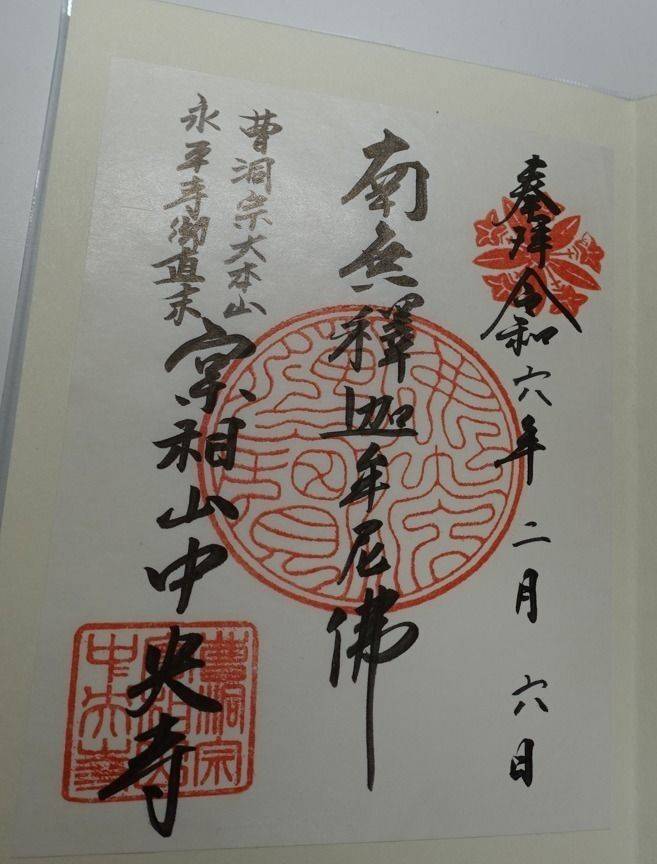 奉拝 令和六年二月六日
南無釋迦牟尼佛
曹洞宗大本山
永平寺御直末
実相山中央寺
曹洞宗